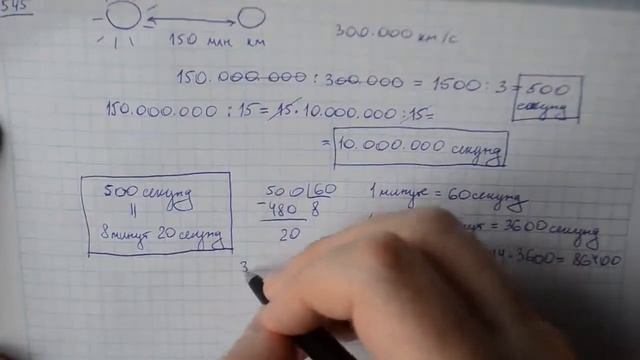 545
150 млн км
300.000 км/с
150.000.000 : 300.000 = 1500 : 3 = 500 секунд
150.000.000 : 15 = 15 · 10.000.000 : 15 =
= 10.000.000 секунд
500 секунд
||
8 минут 20 секунд
500 | 60
- 480 8
20
1 минута = 60 секунд
= 3600 секунд
· 3600 = 86400
3